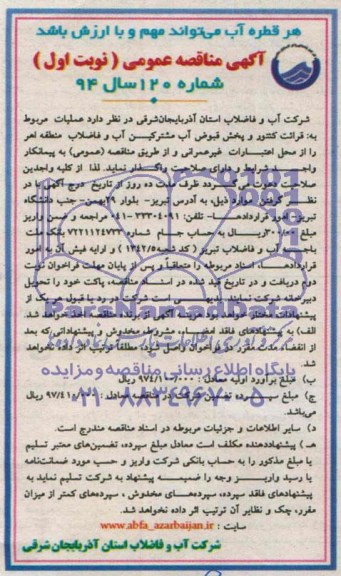 هر قطره آب می‌تواند مهم و با ارزش باشد
آگهی مناقصه عمومی ( نوبت اول )
شماره ۱۲۰ سال ۹۴
شرکت آب و فاضلاب استان آذربایجان‌شرقی در نظر دارد عملیات مربوط
به: قرائت کنتور و پخش قبوض آب مشترکین آب و فاضلاب منطقه اهر
را از محل اعتبارات غیرعمرانی و از طریق مناقصه (عمومی) به پیمانکار
واجد شرایط و دارای صلاحیت واگذار نماید. لذا از کلیه واجدین
صلاحیت دعوت می‌گردد ظرف مدت ده روز از تاریخ درج آگهی با در
نظر گرفتن موارد ذیل، به آدرس تبریز- بلوار ۲۹بهمن- جنب دانشگاه
تبریز- امور قراردادها- تلفن: ۳۳۳۰۴۰۹۱-۰۴۱ مراجعه و ضمن واریز
مبلغ ریال به حساب جام شماره بانک ملت
باجه آب و فاضلاب تبریز ( کد شعبه ) و ارایه فیش آن به امور
قراردادها، اسناد مربوطه را متعاقباً و پس از پایان مهلت فراخوان نوبت
دوم دریافت و در تاریخ قید شده در اسناد مناقصه، پاکت خود را تحویل
دبیرخانه شرکت نمایند. بدیهی است شرکت در رد یا قبول هر یک از
پیشنهادات مختار خواهد بود هزینه آگهی از برنده مناقصه اخذ خواهد شد.
الف) به پیشنهادهای فاقد امضاء، مشروط، مخدوش و پیشنهاداتی که بعد
از انقضاء مدت مقرر در فراخوان واصل شود، مطلقاً ترتیب اثر داده نخواهد
شد.
پایگاه اطلاع رسانی مناقصه و مزایده
ب) مبلغ برآورد اولیه معادل: ریال
۰۲۱-۸۸۳۴۹۶۷۰-۵
ج) مبلغ سپرده شرکت در مناقصه معادل: ریال
می‌باشد.
د) سایر اطلاعات و جزئیات مربوطه در اسناد مناقصه مندرج است.
هـ) پیشنهاددهنده مکلف است معادل مبلغ سپرده، تضمین‌های معتبر تسلیم
یا مبلغ مذکور را به حساب بانکی شرکت واریز و حسب مورد ضمانت‌نامه
یا رسید واریز وجه را ضمیمه پیشنهاد به شرکت تسلیم نماید به
پیشنهادهای فاقد سپرده، سپرده‌های مخدوش ، سپرده‌های کمتر از میزان
مقرر، چک و نظایر آن ترتیب اثر داده نخواهد شد.
سایت : www.abfa_azarbaijan.ir
شرکت آب و فاضلاب استان آذربایجان شرقی